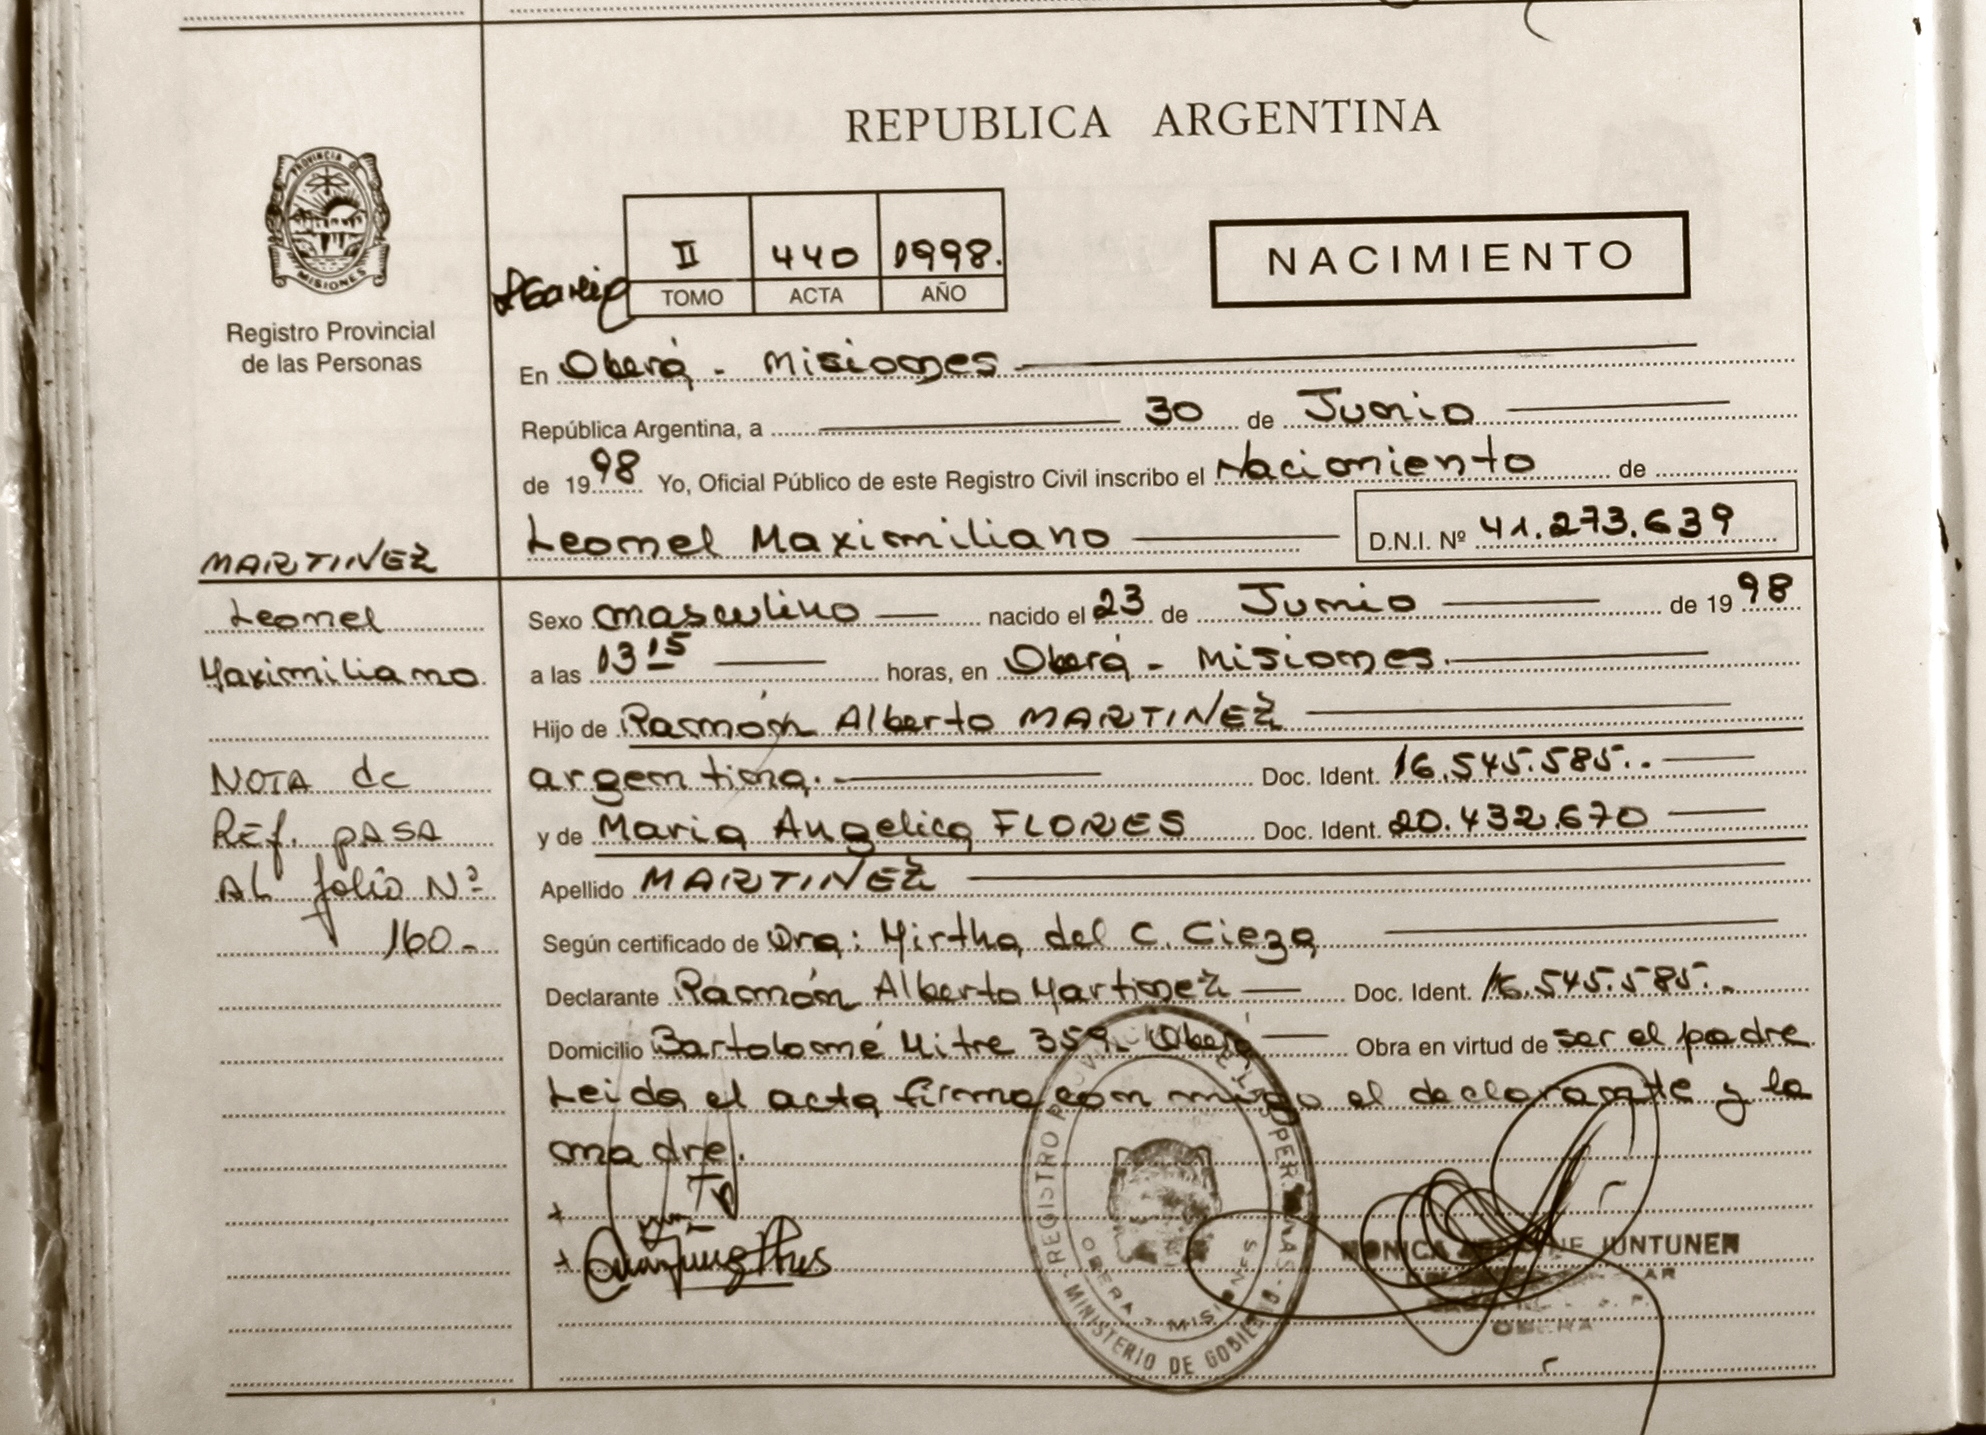 REPUBLICA ARGENTINA
PROVINCIA DE
MISIONES
Registro Provincial
de las Personas
II 440 1998.
TOMO ACTA AÑO
NACIMIENTO
En Oberá - Misiones
República Argentina, a 30 de Junio
de 1998 Yo, Oficial Público de este Registro Civil inscribo el Nacimiento de
Leonel Maximiliano D.N.I. Nº 41.273.639
MARTINEZ
Leonel
Maximiliano
NOTA de
REf. pASA
AL folio Nº
160-
Sexo masculino nacido el 23 de Junio de 1998
a las 13 15 horas, en Oberá - Misiones.
Hijo de Ramón Alberto MARTINEZ
argentina. Doc. Ident. 16.545.585..
y de Maria Angelica FLORES Doc. Ident. 20.432.670
Apellido MARTINEZ
Según certificado de Dra: Mirtha del C. Cieza
Declarante Ramón Alberto Martinez Doc. Ident. 16.545.585.-
Domicilio Bartolomé Mitre 359. Oberá Obra en virtud de ser el padre
Leida el acta firma con migo el declarante y la
madre.
REGISTRO PROVINCIAL DE LAS PERSONAS
OBERA - MISIONES
MINISTERIO DE GOBIERNO
MONICA JUNTUNEN
OBERA